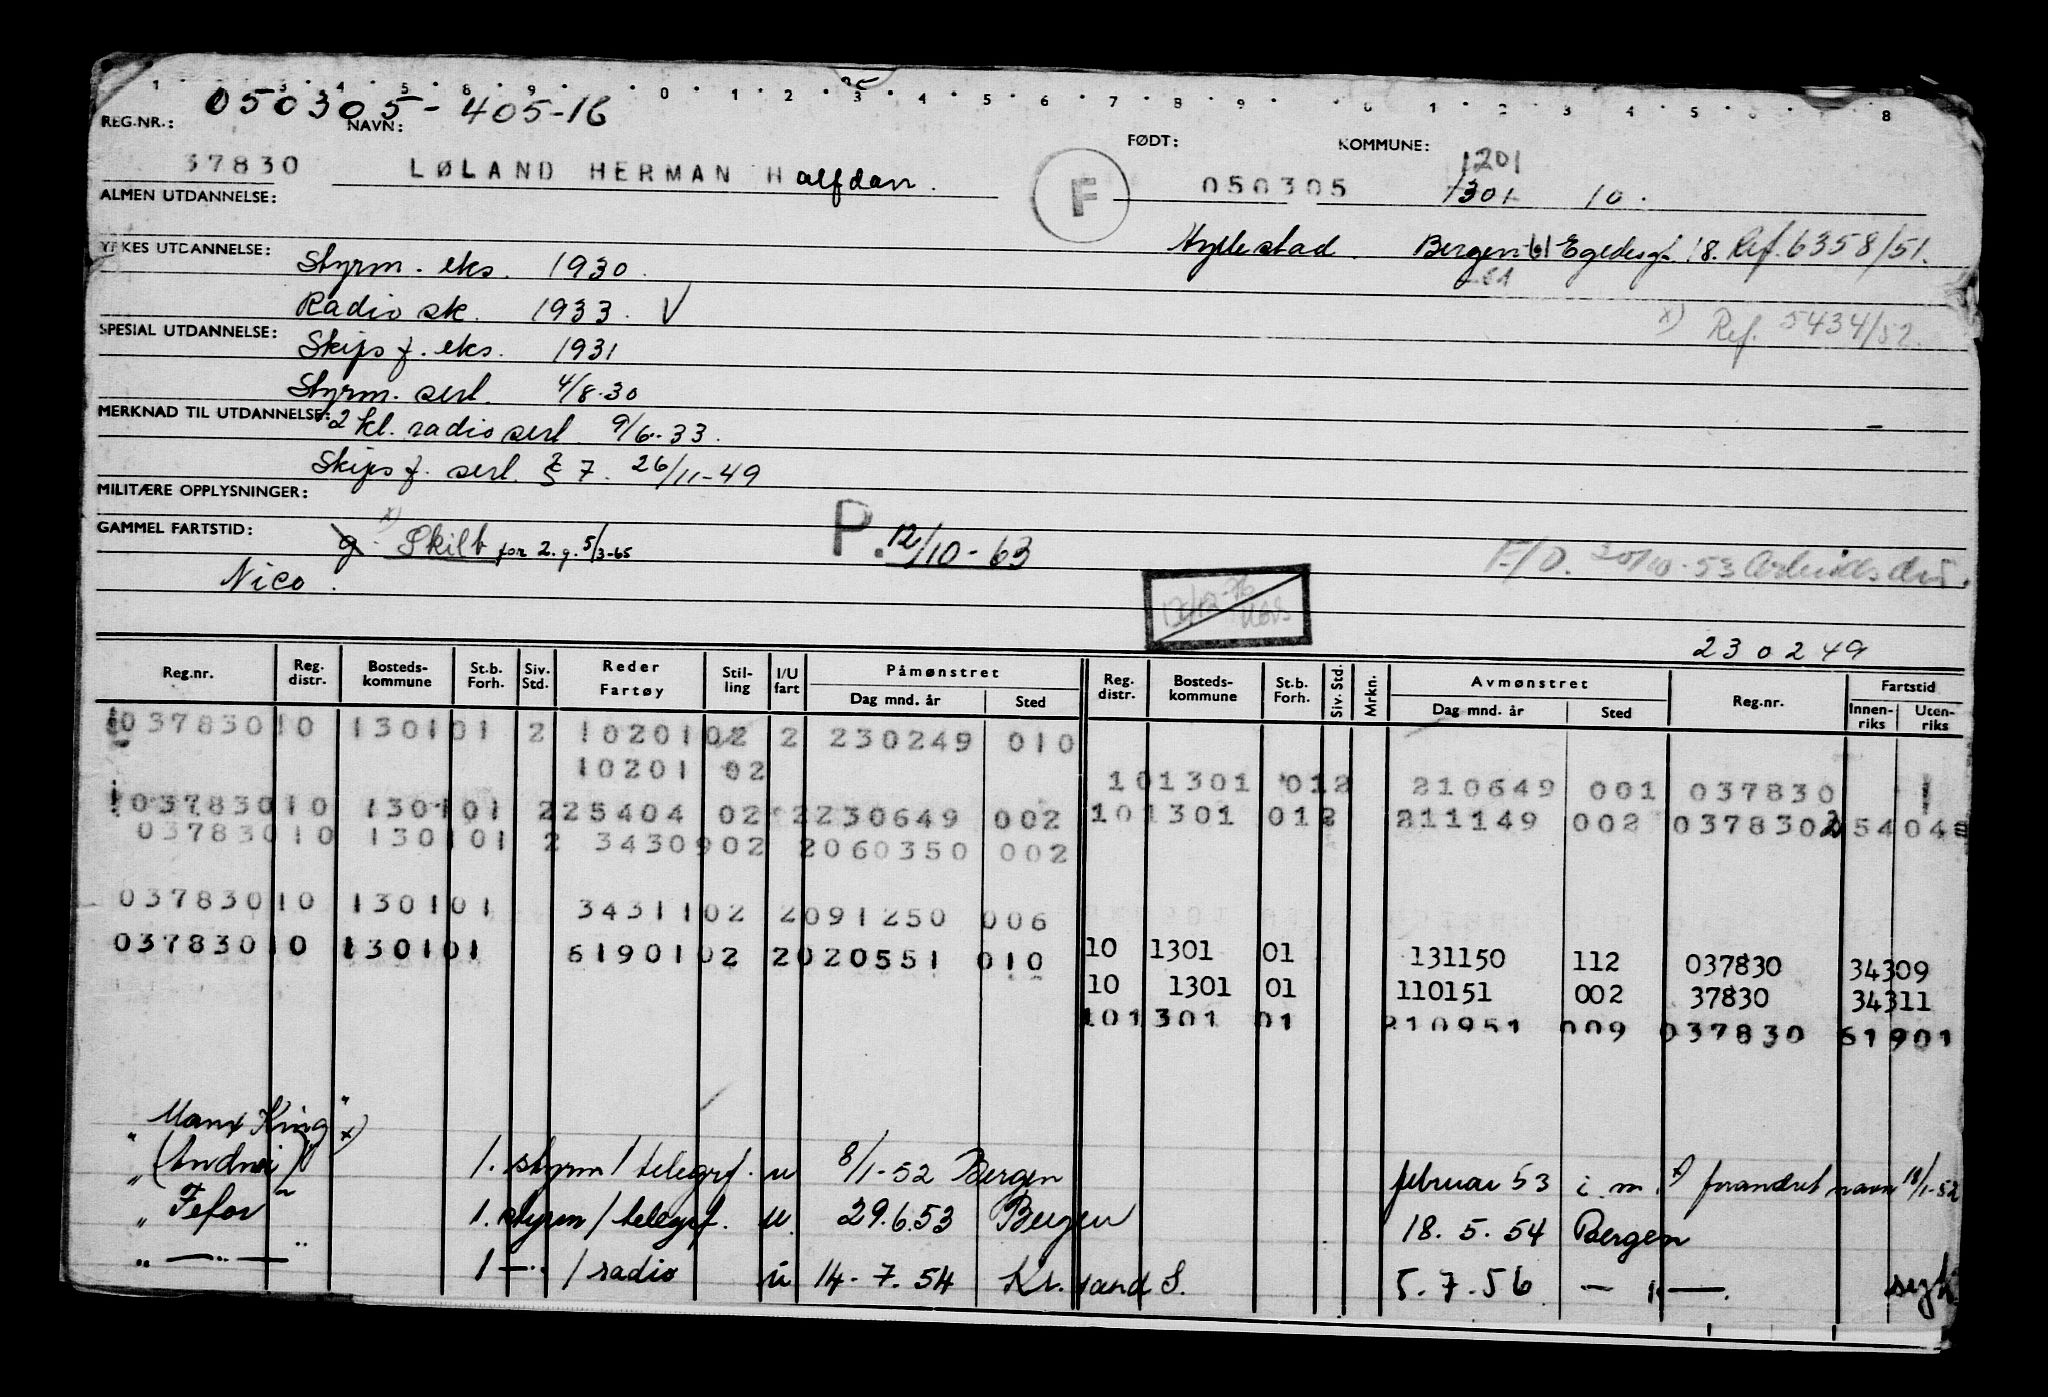 1 3 4 5 8 9 0 1 2 3 4 5 6 7 8 9 0 1 2 3 4 5 8
050305-405-16
REG.NR.: NAVN: FØDT: KOMMUNE:
1201
37830 LØLAND HERMAN Halfdan. F 050305 1301 10.
ALMEN UTDANNELSE:
Hyllestad. Bergen Egedesgt. 18. Ref. 6358/51.
YRKES UTDANNELSE: Styrm. eks. 1930.
Radio sk. 1933. V
x) Ref. 5434/52.
SPESIAL UTDANNELSE: Skips f. eks. 1931
Styrm. serl. 4/8-30
MERKNAD TIL UTDANNELSE: 2 kl. radio serl. 9/6-33.
Skips f. serl. 7. 26/11-49
MILITÆRE OPPLYSNINGER:
GAMMEL FARTSTID: g. x) Skilt for 2. g. 5/3-65 P. 12/10-63
F/O. 20/10-53
Nico.
230249
Reg.nr. Reg. distr. Bosteds- kommune St.b. Forh. Siv. Std. Reder Fartøy Stil- ling I/U fart Påmønstret Dag mnd. år Sted Reg. distr. Bosteds- kommune St.b. Forh. Siv. Std. Mrkn. Avmønstret Dag mnd. år Sted Reg.nr. Fartstid Innen- riks Uten- riks
037830 10 1301 01 2 10201 02 2 230249 010
10201 02 10 1301 01 2 210649 001 037830 1
037830 10 1301 01 2 25404 02 2 230649 002 10 1301 01 2 211149 002 037830 25404
037830 10 1301 01 2 34309 02 2 060350 002
037830 10 1301 01 34311 02 2 091250 006
037830 10 1301 01 61901 02 2 020551 010 10 1301 01 131150 112 037830 34309
10 1301 01 110151 002 37830 34311
10 1301 01 210951 009 037830 61901
"Manx King" x)
"(Andrei)" 1. styrm/telegrf. u 8/1-52 Bergen februar 53 i. m. x) forandret navn 18/1-52
"Fefor" 1. styrm/telegrf. u. 29.6.53 Bergen 18. 5. 54 Bergen
" — " — " 1 — " — / radio u 14-7.54 Kr.sand S. 5.7.56 — " —. syk